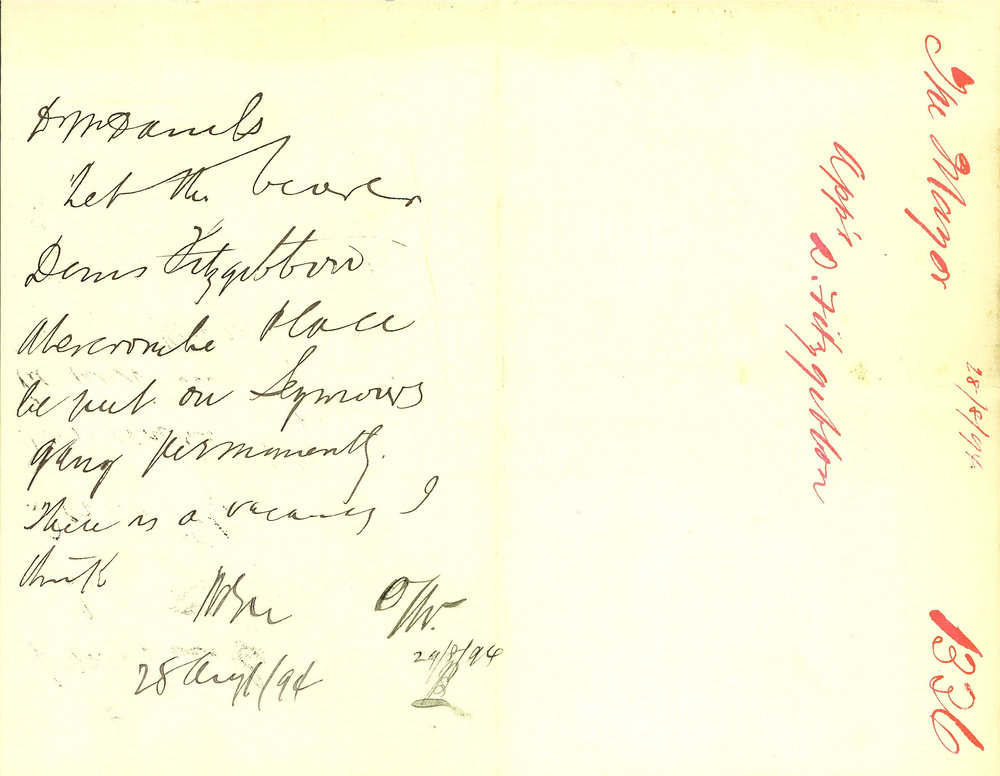 Dr McDaniels
Let the bearer
Denis Fitzgibbon
Abercrombie Place
be put on Seymours
gang permanently.
There is a vacancy I
think
28 Augt/94
29/8/94
The Mayor
28/8/94
App's
D. Fitzgibbon
1326